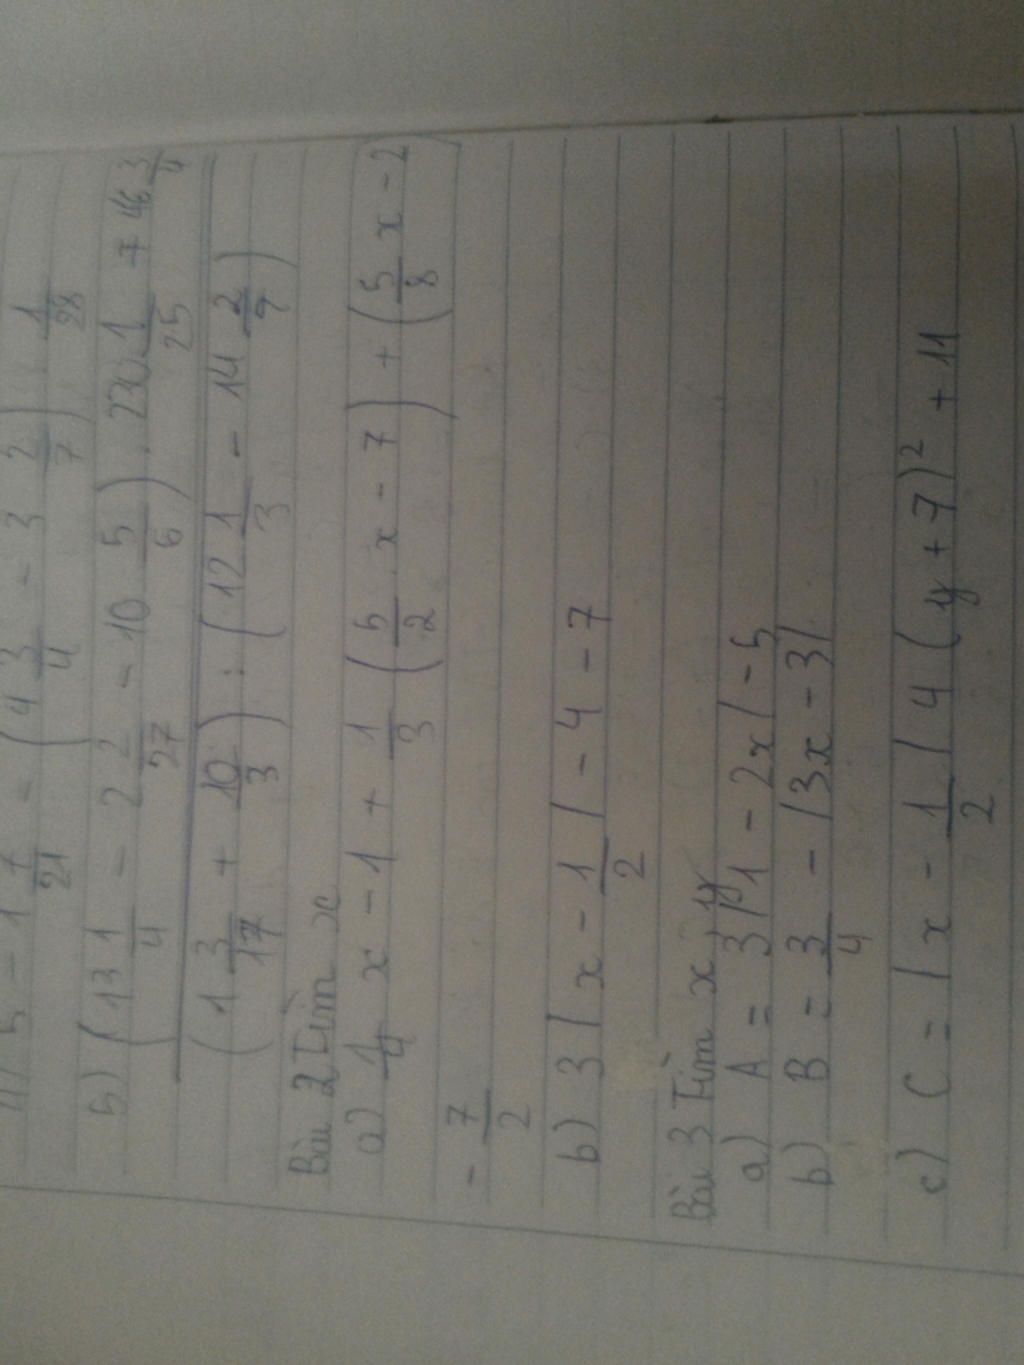 4) 5 - 1 7/21 - (4 3/4 - 3 2/7) . 1/28
5) (13 1/4 - 2 2/27 - 10 5/6) . 230 1/25 + 46 3/4
(1 3/17 + 10/3) : (12 1/3 - 14 2/7)
Bài 2 Tìm x
a) 1/4 x - 1 + 1/3 (5/2 x - 7) + (5/8 x - 2
- 7/2
b) 3 | x - 1/2 | - 4 - 7
Bài 3 Tìm x, y
a) A = 3 | 1 - 2x | - 5
b) B = 3/4 - | 3x - 3 |
c) C = | x - 1/2 | 4 (y + 7)² + 11